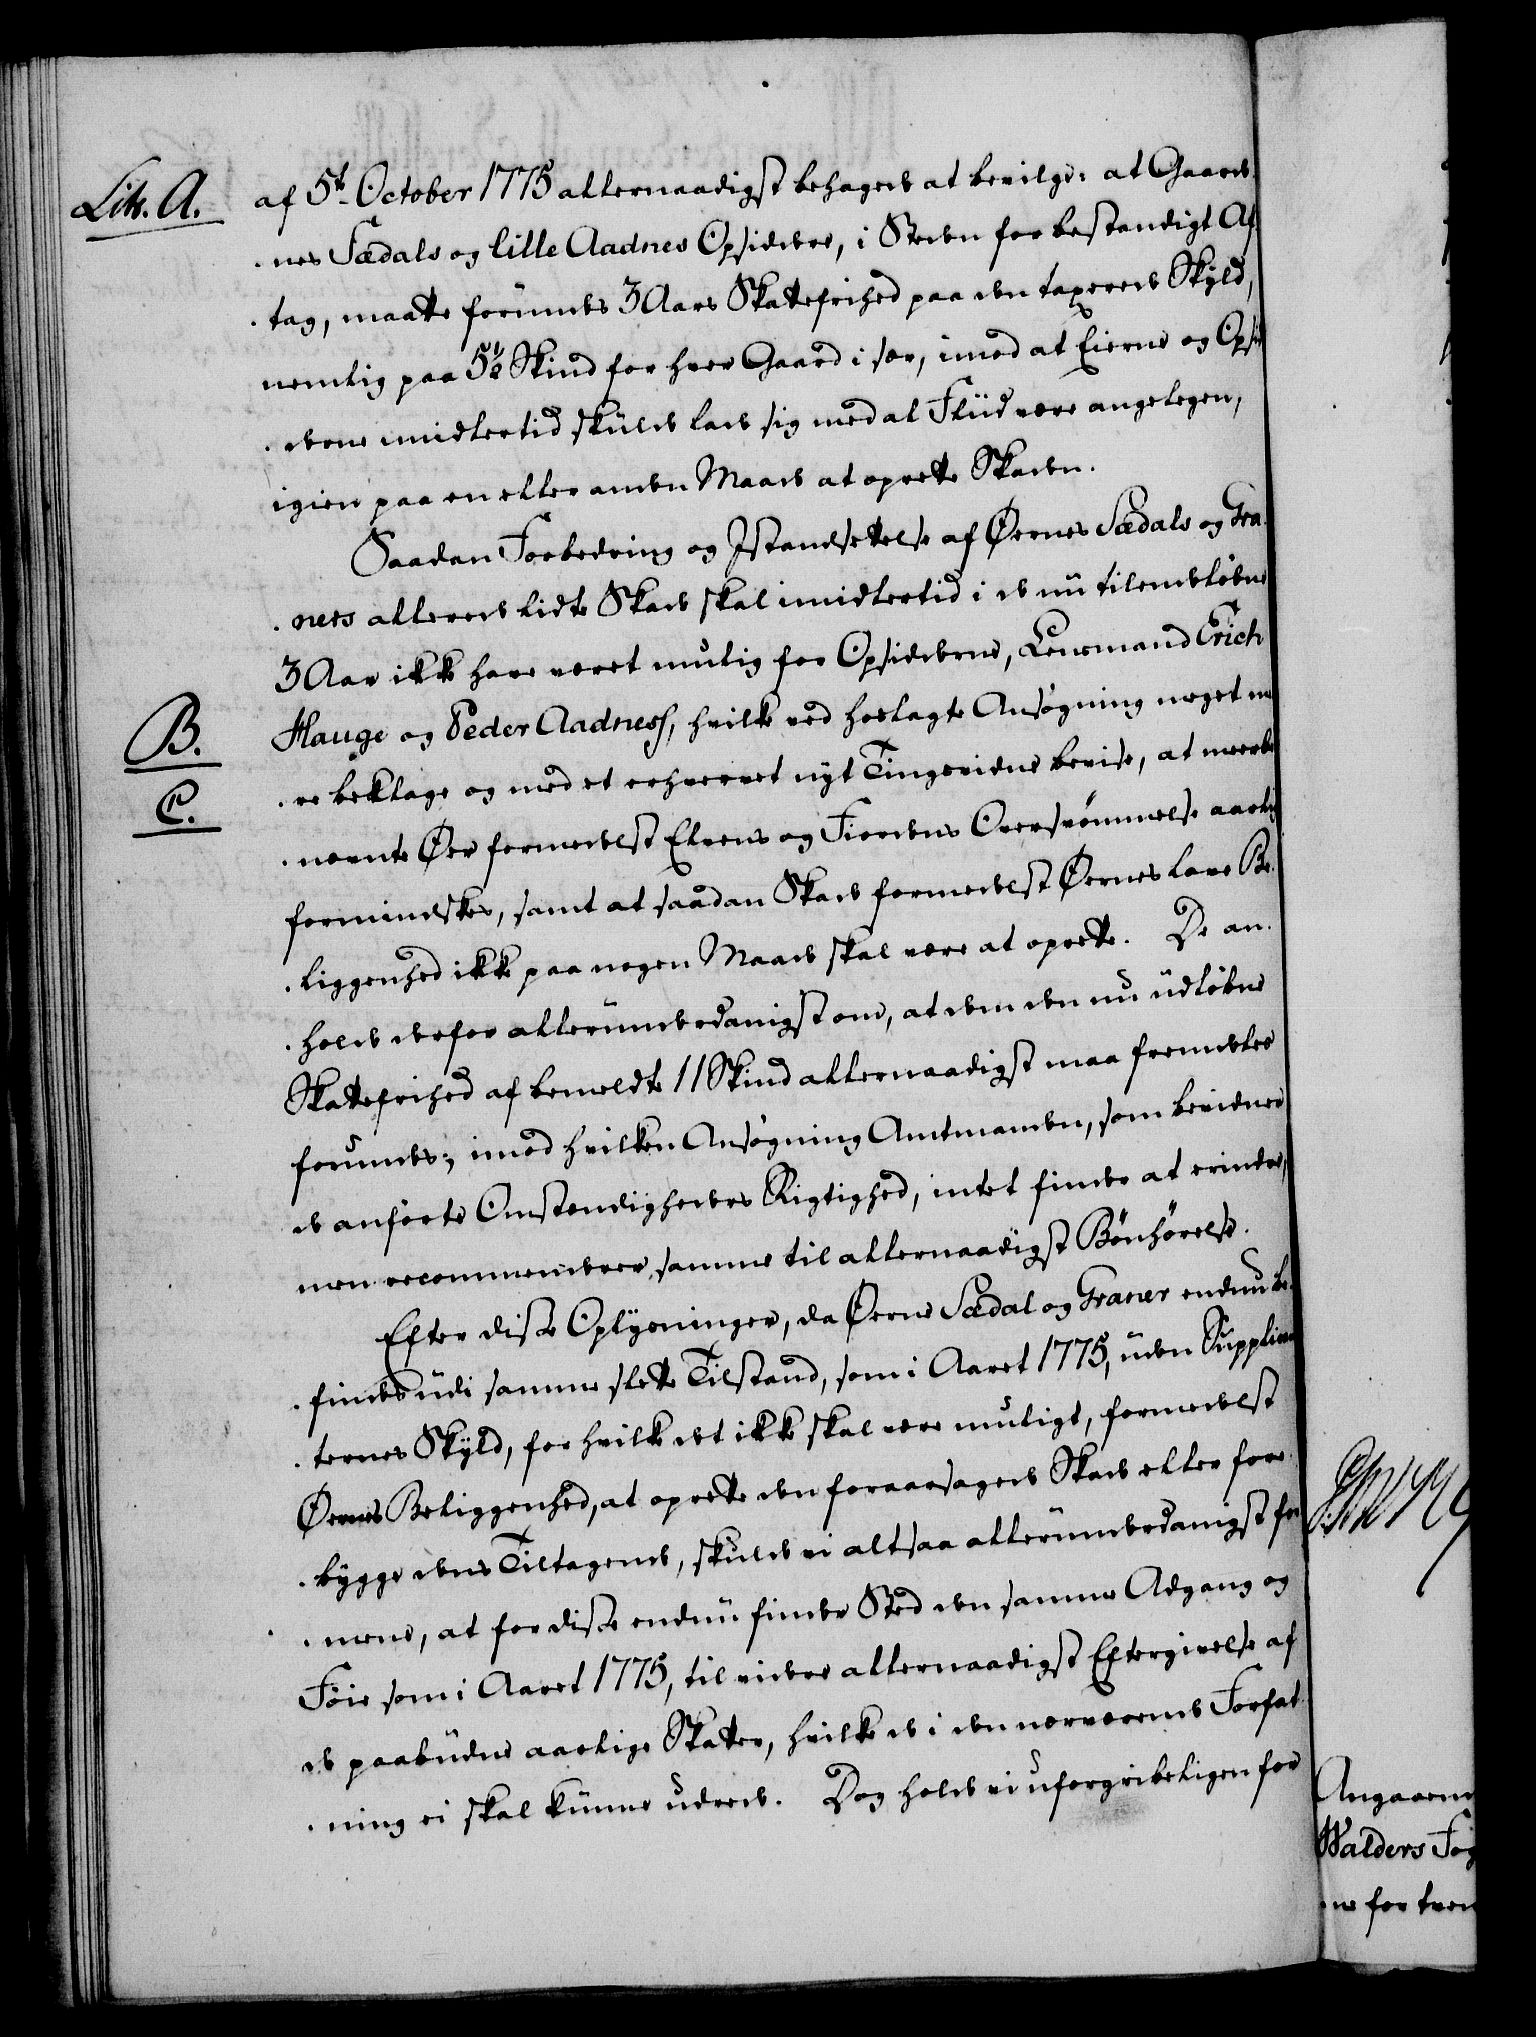 Litr. A.
af 5t October 1775 allernaadigst behaget at bevilge: at Gaarde-
-nes Sædals og lille Aadnes Opsiddere, i Steden for bestandigt Af-
-tag, maatte forundes 3 Aars Skattefrihed paa den taxerede Skyld,
nemlig paa 5½ Skind for hver Gaard i sær, imod at Eierne og Opsid-
-derne imidlertid skulde lade sig med al Fliid være angelegen,
igien paa en eller anden Maade at oprette Skaden.
Saadan Forbedring og Istandsettelse af Øernes Sædals og Gra-
-ners allerede lidte Skade skal imidlertid i de nu tilendeløbne
3 Aar ikke have været mulig for Opsidderne, Lensmand Erich
B.
Hauge og Peder Aadness, hvilke ved hoslagte Ansøgning meget me-
C.
-re beklage og med et erhvervet nyt Tingsvidne bevise, at meerbe-
-nævnte Øer formedelst Elvens og Fiordens Oversvømmelse aarlig
formindskes, samt at saadan Skade formedelst Øernes lave Be-
-liggenhed ikke paa nogen Maade skal være at oprette. De an-
-holde derfor allerunderdanigst om, at dem den nu udløbne
Skattefrihed af bemeldte 11 Skind allernaadigst maa fremdeles
forundes; imod hvilken Ansøgning Amtmanden, som bevidner
de anførte Omstændigheders Rigtighed, intet finder at erindre,
men recommenderer samme til allernaadigst Bønhørelse.
Efter disse Oplysninger, da Øerne Sædal og Graner endnu be-
-findes udi samme slette Tilstand, som i Aaret 1775, uden Supplican-
-ternes Skyld, for hvilke det ikke skal være muligt, formedelst
Øernes Beliggenhed, at oprette den foraarsagede Skade eller fore-
-bygge dens Tiltagende, skulde vi altsaa allerunderdanigst for-
-mene, at for disse endnu finder Sted den samme Adgang og
Føie som i Aaret 1775, til videre allernaadigst Eftergivelse af
de paabudne aarlige Skatter, hvilke de i den nærværende Forfat-
-ning ei skal kunne udrede. Dog holde vi uforgribeligen for
Angaaend
Walders Fog
-ne for tven